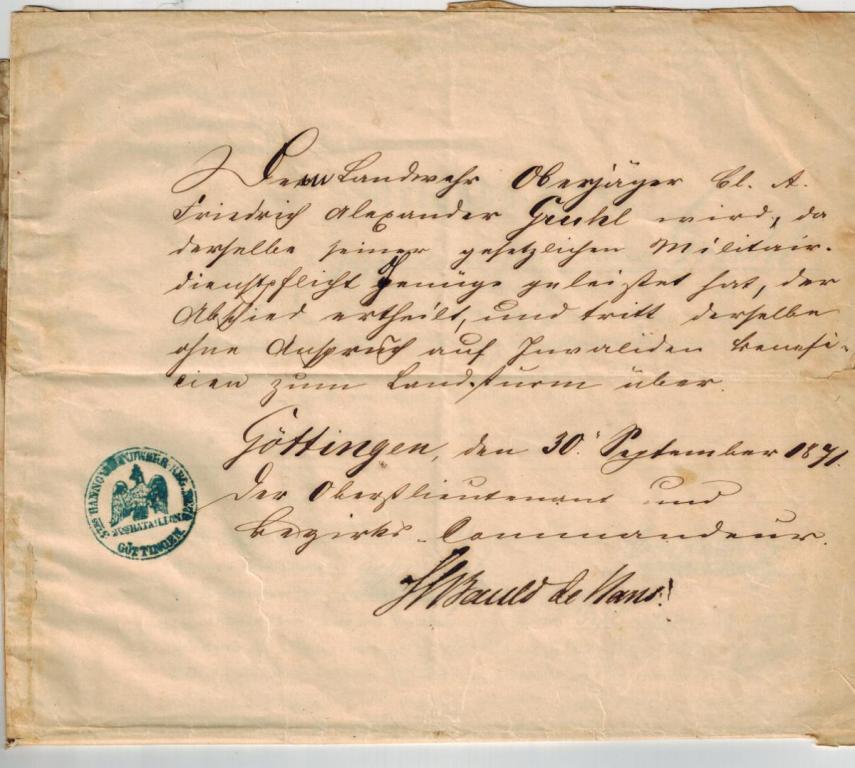 Dem Landwehr Oberjäger Cl. A.
Friedrich Alexander Gruhl wird, da
derselbe seiner gesetzlichen Militair-
dienstpflicht Genüge geleistet hat, der
Abschied ertheilt, und tritt derselbe
ohne Anspruch auf Invaliden Benefi-
cien zum Landsturm über.
Göttingen, den 30. September 1871.
Der Oberstlieutenant und
Bezirks-Commandeur.
de Nans
HANNOV. LANDWEHR REG.
BATAILLON
GÖTTINGEN